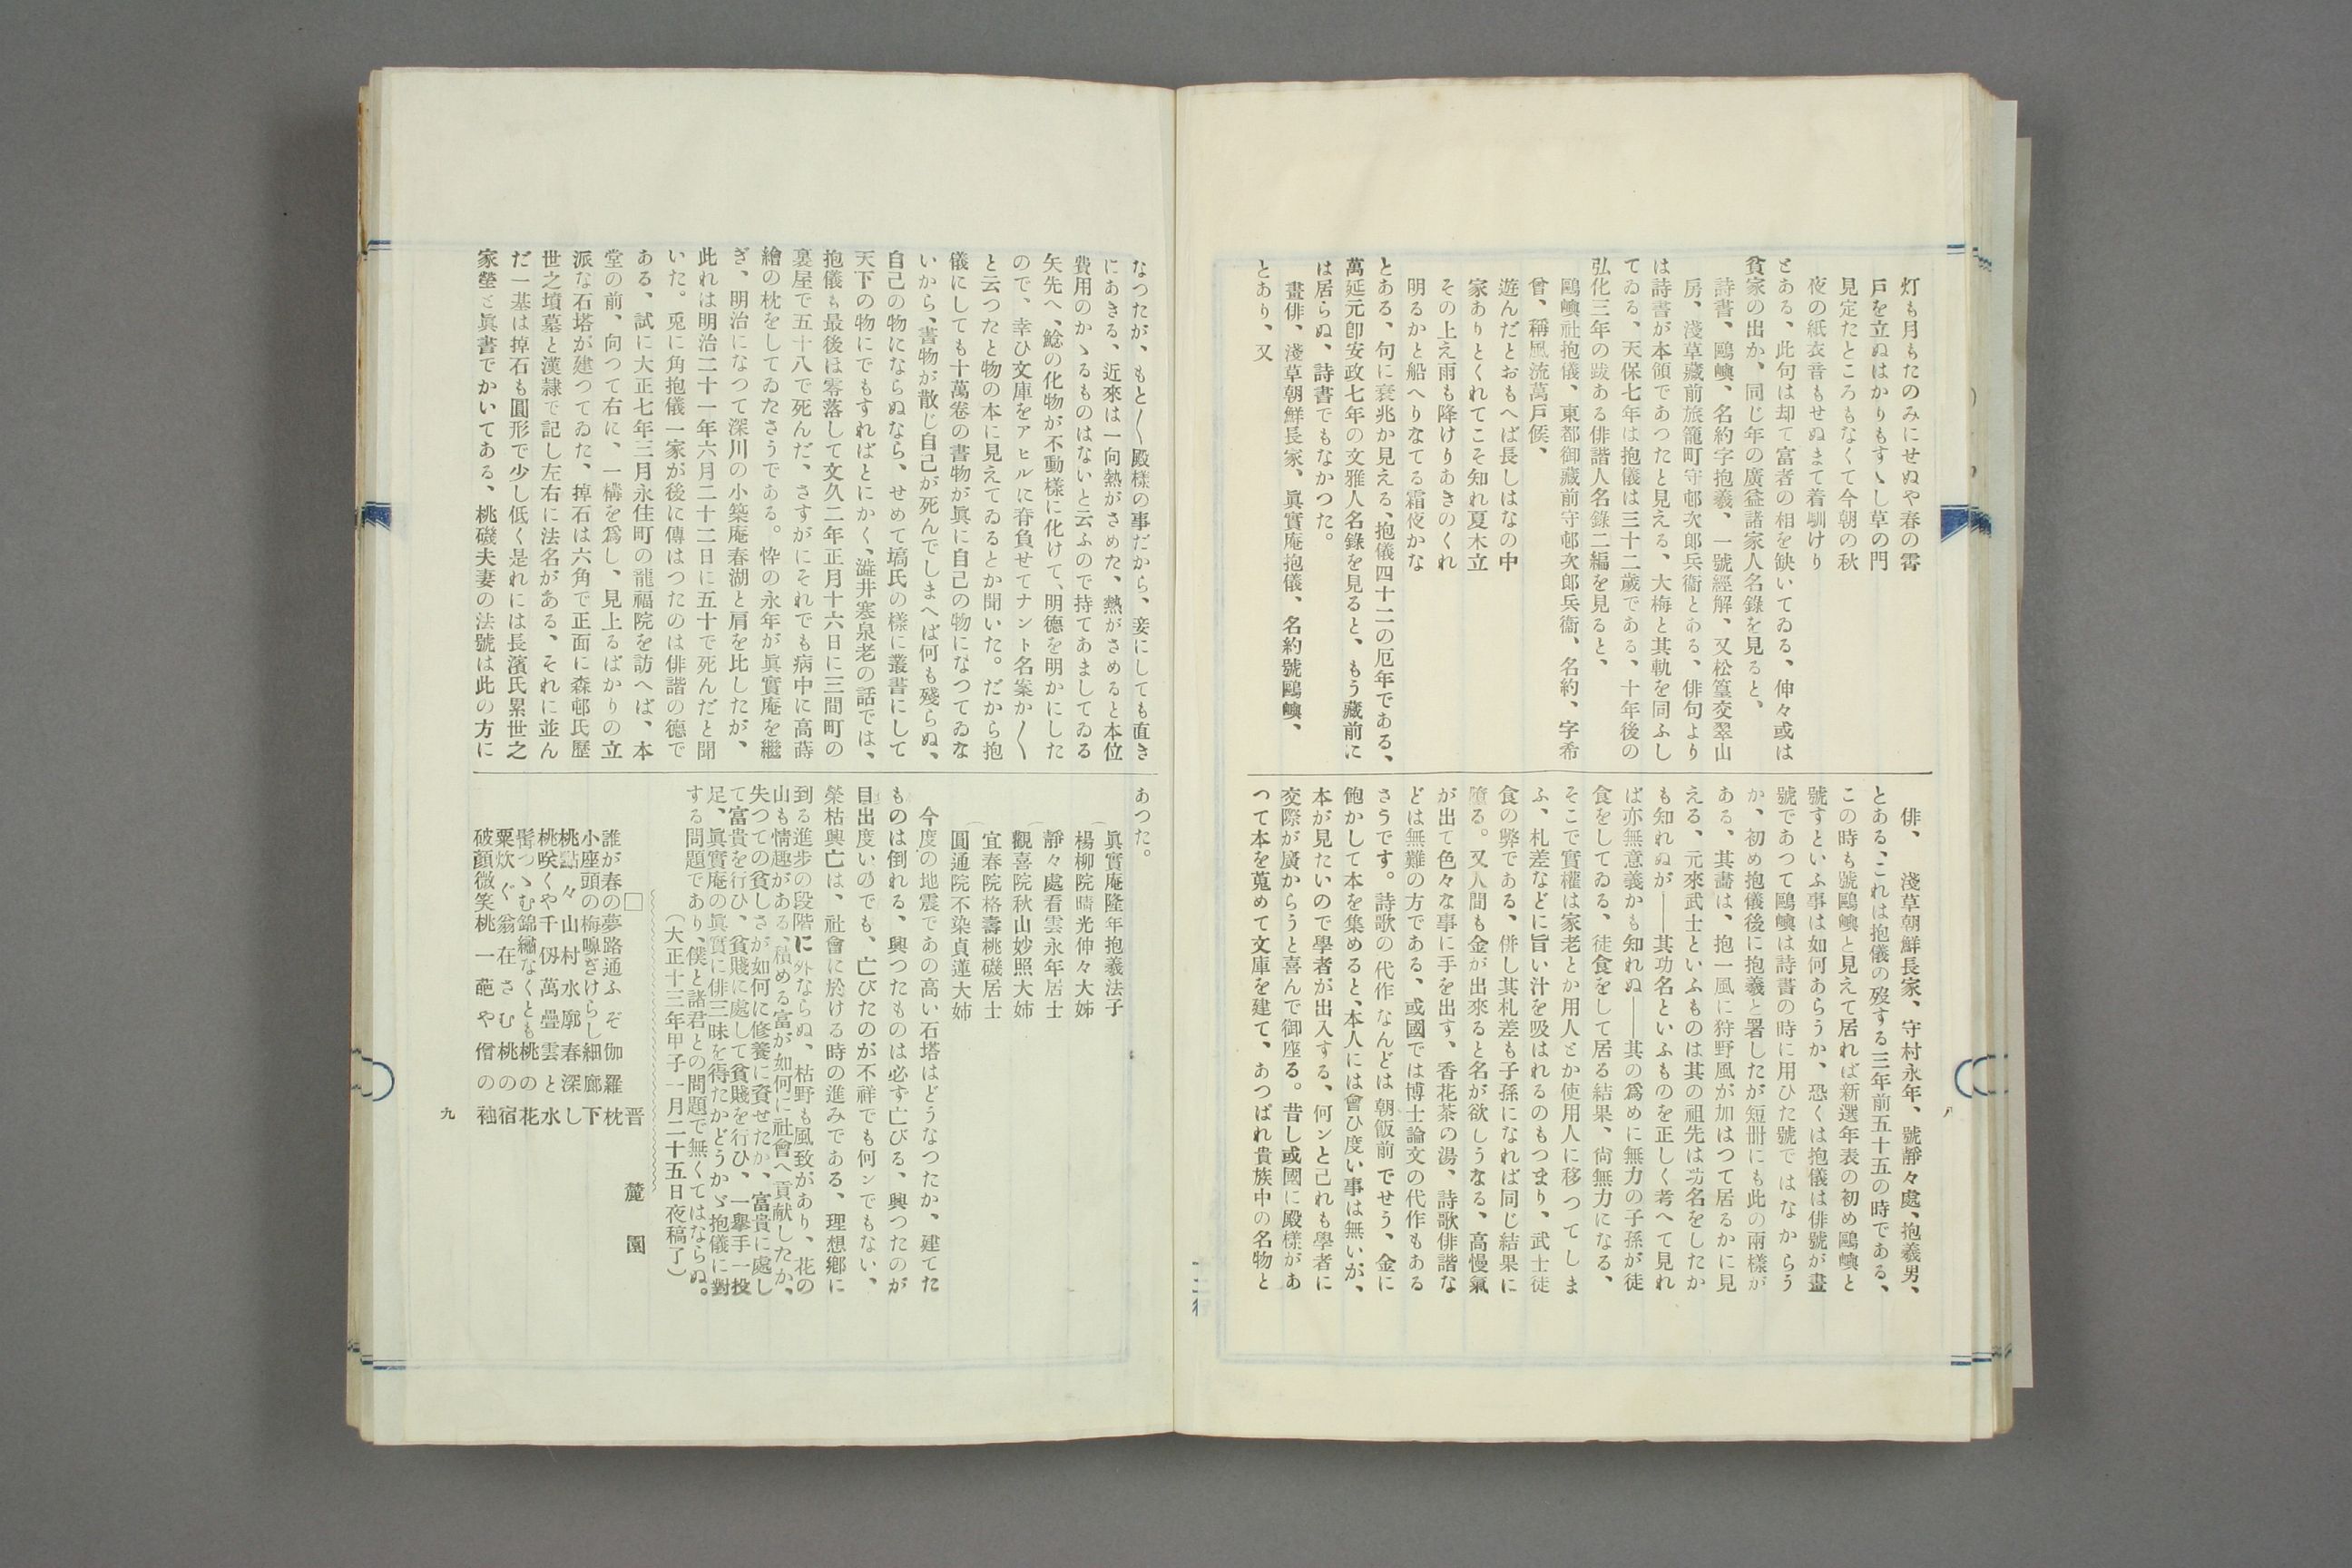 灯も月もたのみにせぬや春の霄
戸を立ぬはかりもすゝし草の門
見定たところもなくて今朝の秋
夜の紙衣音もせぬまて着馴けり
とある、此句は却て富者の相を缺いてゐる、伸々或は
貧家の出か、同じ年の廣益諸家人名錄を見ると、
詩書、鷗嶼、名約字抱羲、一號經解、又松篁交翠山
房、淺草藏前旅籠町守邨次郎兵衞とある、俳句より
は詩書が本領であつたと見える、大梅と其軌を同ふし
てゐる、天保七年は抱儀は三十二歲である、十年後の
弘化三年の跋ある俳諧人名錄二編を見ると、
鷗嶼社抱儀、東都御藏前守邨次郎兵衞、名約、字希
曾、稱風流萬戸候、
遊んだとおもへば長しはなの中
家ありとくれてこそ知れ夏木立
その上え雨も降けりあきのくれ
明るかと船へりなてる霜夜かな
とある、句に衰兆か見える、抱儀四十二の厄年である、
萬延元卽安政七年の文雅人名錄を見ると、もう藏前に
は居らぬ、詩書でもなかつた。
畫俳、淺草朝鮮長家、眞實庵抱儀、名約號鷗嶼、
とあり、又
俳、淺草朝鮮長家、守村永年、號靜々處、抱羲男、
とある、これは抱儀の歿する三年前五十五の時である、
この時も號鷗嶼と見えて居れば新選年表の初め鷗嶼と
號すといふ事は如何あらうか、恐くは抱儀は俳號が畫
號であつて鷗嶼は詩書の時に用ひた號ではなからう
か、初め抱儀後に抱羲と署したが短冊にも此の兩樣が
ある、其畵は、抱一風に狩野風が加はつて居るかに見
える、元來武士といふものは其の祖先は功名をしたか
も知れぬが――其功名といふものを正しく考へて見れ
ば亦無意義かも知れぬ――其の爲めに無力の子孫が徒
食をしてゐる、徒食をして居る結果、尙無力になる、
そこで實權は家老とか用人とか使用人に移つてしま
ふ、札差などに旨い汁を吸はれるのもつまり、武士徒
食の弊である、併し其札差も子孫になれば同じ結果に
墮る。又人間も金が出來ると名が欲しうなる、高慢氣
が出て色々な事に手を出す、香花茶の湯、詩歌俳諧な
どは無難の方である、或國では博士論文の代作もある
さうです。詩歌の代作なんどは朝飯前でせう、金に
飽かして本を集めると、本人には會ひ度い事は無いが、
本が見たいので學者が出入する、何ンと己れも學者に
交際が廣からうと喜んで御座る。昔し或國に殿樣があ
つて本を蒐めて文庫を建て、あつぱれ貴族中の名物と
八
なつたが、もと〱殿樣の事だから、妾にしても直き
にあきる、近來は一向熱がさめた、熱がさめると本位
費用のかゝるものはないと云ふので持てあましてゐる
矢先へ、鯰の化物が不動樣に化けて、明德を明かにした
ので、幸ひ文庫をアヒルに脊負せてナント名案か〱
と云つたと物の本に見えてゐるとか聞いた。だから抱
儀にしても十萬卷の書物が眞に自己の物になつてゐな
いから、書物が散じ自己が死んでしまへば何も殘らぬ、
自己の物にならぬなら、せめて塙氏の樣に叢書にして
天下の物にでもすればとにかく、澁井寒泉老の話では、
抱儀も最後は零落して文久二年正月十六日に三間町の
裏屋で五十八で死んだ、さすがにそれでも病中に高蒔
繪の枕をしてゐたさうである。忰の永年が眞實庵を繼
ぎ、明治になつて深川の小築庵春湖と肩を比したが、
此れは明治二十一年六月二十二日に五十で死んだと聞
いた。兎に角抱儀一家が後に傳はつたのは俳諧の德で
ある、試に大正七年三月永住町の龍福院を訪へば、本
堂の前、向つて右に、一構を爲し、見上るばかりの立
派な石塔が建つてゐた、掉石は六角で正面に森邨氏歷
世之墳墓と漢隷で記し左右に法名がある、それに並ん
だ一基は掉石も圓形で少し低く是れには長濱氏累世之
家塋と眞書でかいてある、桃磯夫妻の法號は此の方に
あつた。
眞實庵隆年抱羲法子
楊柳院晴光伸々大姉
靜々處看雲永年居士
觀喜院秋山妙照大姉
宜春院格壽桃磯居士
圓通院不染貞蓮大姉
今度の地震であの高い石塔はどうなつたか、建てた
ものは倒れる、興つたものは必ず亡びる、興つたのが
目出度いのでも、亡びたのが不祥でも何ンでもない、
榮枯興亡は、社會に於ける時の進みである、理想鄕に
到る進步の段階に外ならぬ、枯野も風致があり、花の
山も情趣がある、積める富が如何に社會へ貢献したか、
失つての貧しさが如何に修養に資せたか、富貴に處し
て富貴を行ひ、貧賤に處して貧賤を行ひ、一擧手一投
足、眞實庵の眞實に俳三昧を得たかどうかゞ抱儀に對
する問題であり、僕と諸君との問題で無くてはならぬ。
（大正十三年甲子一月二十五日夜稿了）
□
晋　麓園
誰が春の夢路通ふぞ伽羅枕
小座頭の梅嗅ぎけらし細廊下
桃點々山村水廓春深し
桃咲くや千仭萬疊雲と水
髻つゝむ錦繡なくとも桃の花
粟炊ぐ翁在さむ桃の宿
破顏微笑桃一葩や僧の袖
九